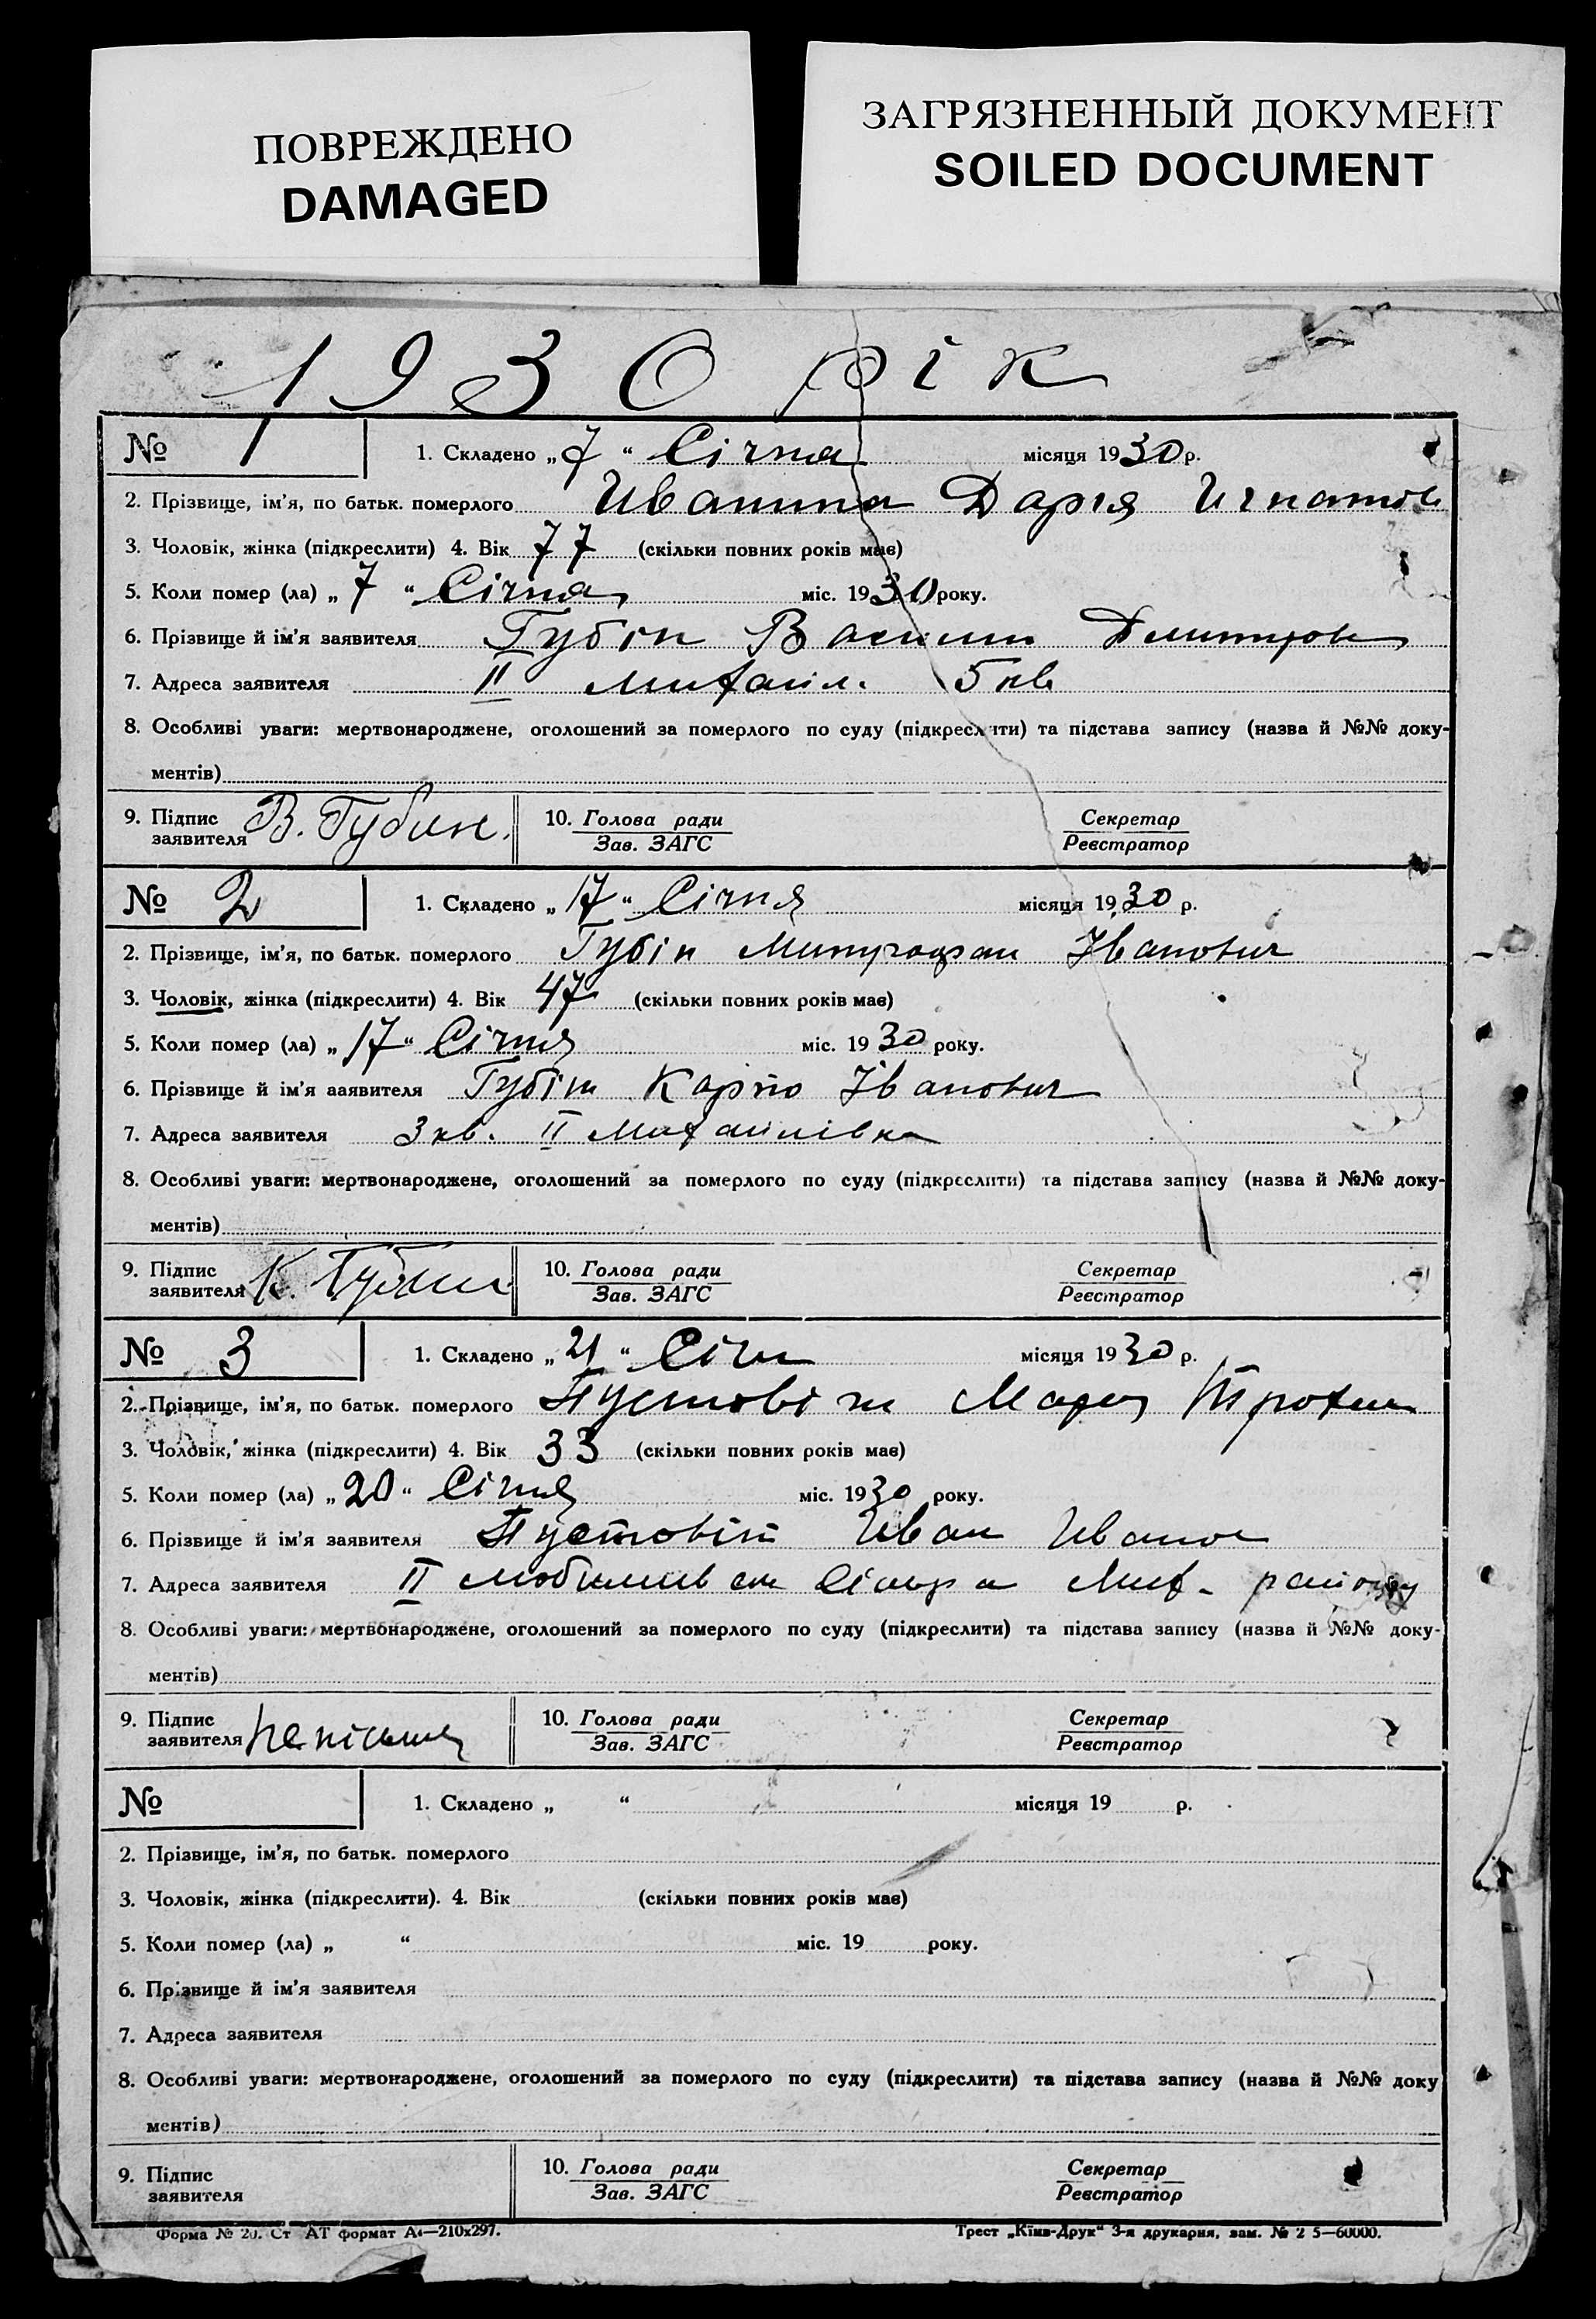 ПОВРЕЖДЕНО
DAMAGED
ЗАГРЯЗНЕННЫЙ ДОКУМЕНТ
SOILED DOCUMENT
1930 рік
№ 1 1. Складено „7“ Січня місяця 1930 р.
2. Прізвище, ім'я, по батьк. померлого Дария Игнатов
3. Чоловік, жінка (підкреслити) 4. Вік 77 (скільки повних років має)
5. Коли помер (ла) „7“ Січня міс. 1930 року.
6. Прізвище й ім'я заявителя Губін Василь Дмитров
7. Адреса заявителя II Михайл. 5 кв
8. Особливі уваги: мертвонароджене, оголошений за померлого по суду (підкреслити) та підстава запису (назва й №№ доку-
ментів)
9. Підпис заявителя В. Губин. 10. Голова ради Зав. ЗАГС Секретар Реєстратор
№ 2 1. Складено „17“ Січня місяця 1930 р.
2. Прізвище, ім'я, по батьк. померлого Губін Митрофан Іванович
3. Чоловік, жінка (підкреслити) 4. Вік 47 (скільки повних років має)
5. Коли помер (ла) „17“ Січня міс. 1930 року.
6. Прізвище й ім'я заявителя Губін Карпо Іванович
7. Адреса заявителя 3 кв. II Михайлівка
8. Особливі уваги: мертвонароджене, оголошений за померлого по суду (підкреслити) та підстава запису (назва й №№ доку-
ментів)
9. Підпис заявителя К. Губин 10. Голова ради Зав. ЗАГС Секретар Реєстратор
№ 3 1. Складено „21“ Січн місяця 1930 р.
2. Прізвище, ім'я, по батьк. померлого Пустовіт Мария Трохим
3. Чоловік, жінка (підкреслити) 4. Вік 33 (скільки повних років має)
5. Коли помер (ла) „20“ Січня міс. 1930 року.
6. Прізвище й ім'я заявителя Пустовіт Иван Иванов
7. Адреса заявителя II Сільра Мих. району
8. Особливі уваги: мертвонароджене, оголошений за померлого по суду (підкреслити) та підстава запису (назва й №№ доку-
ментів)
9. Підпис заявителя 10. Голова ради Зав. ЗАГС Секретар Реєстратор
№ 1. Складено „ “ місяця 19 р.
2. Прізвище, ім'я, по батьк. померлого
3. Чоловік, жінка (підкреслити). 4. Вік (скільки повних років має)
5. Коли помер (ла) „ “ міс. 19 року.
6. Прізвище й ім'я заявителя
7. Адреса заявителя
8. Особливі уваги: мертвонароджене, оголошений за померлого по суду (підкреслити) та підстава запису (назва й №№ доку
ментів)
9. Підпис заявителя 10. Голова ради Зав. ЗАГС Секретар Реєстратор
Форма № 20. Ст АТ формат А4—210х297. Трест „Київ-Друк“ 3-я друкарня, зам. № 2 5—60000.